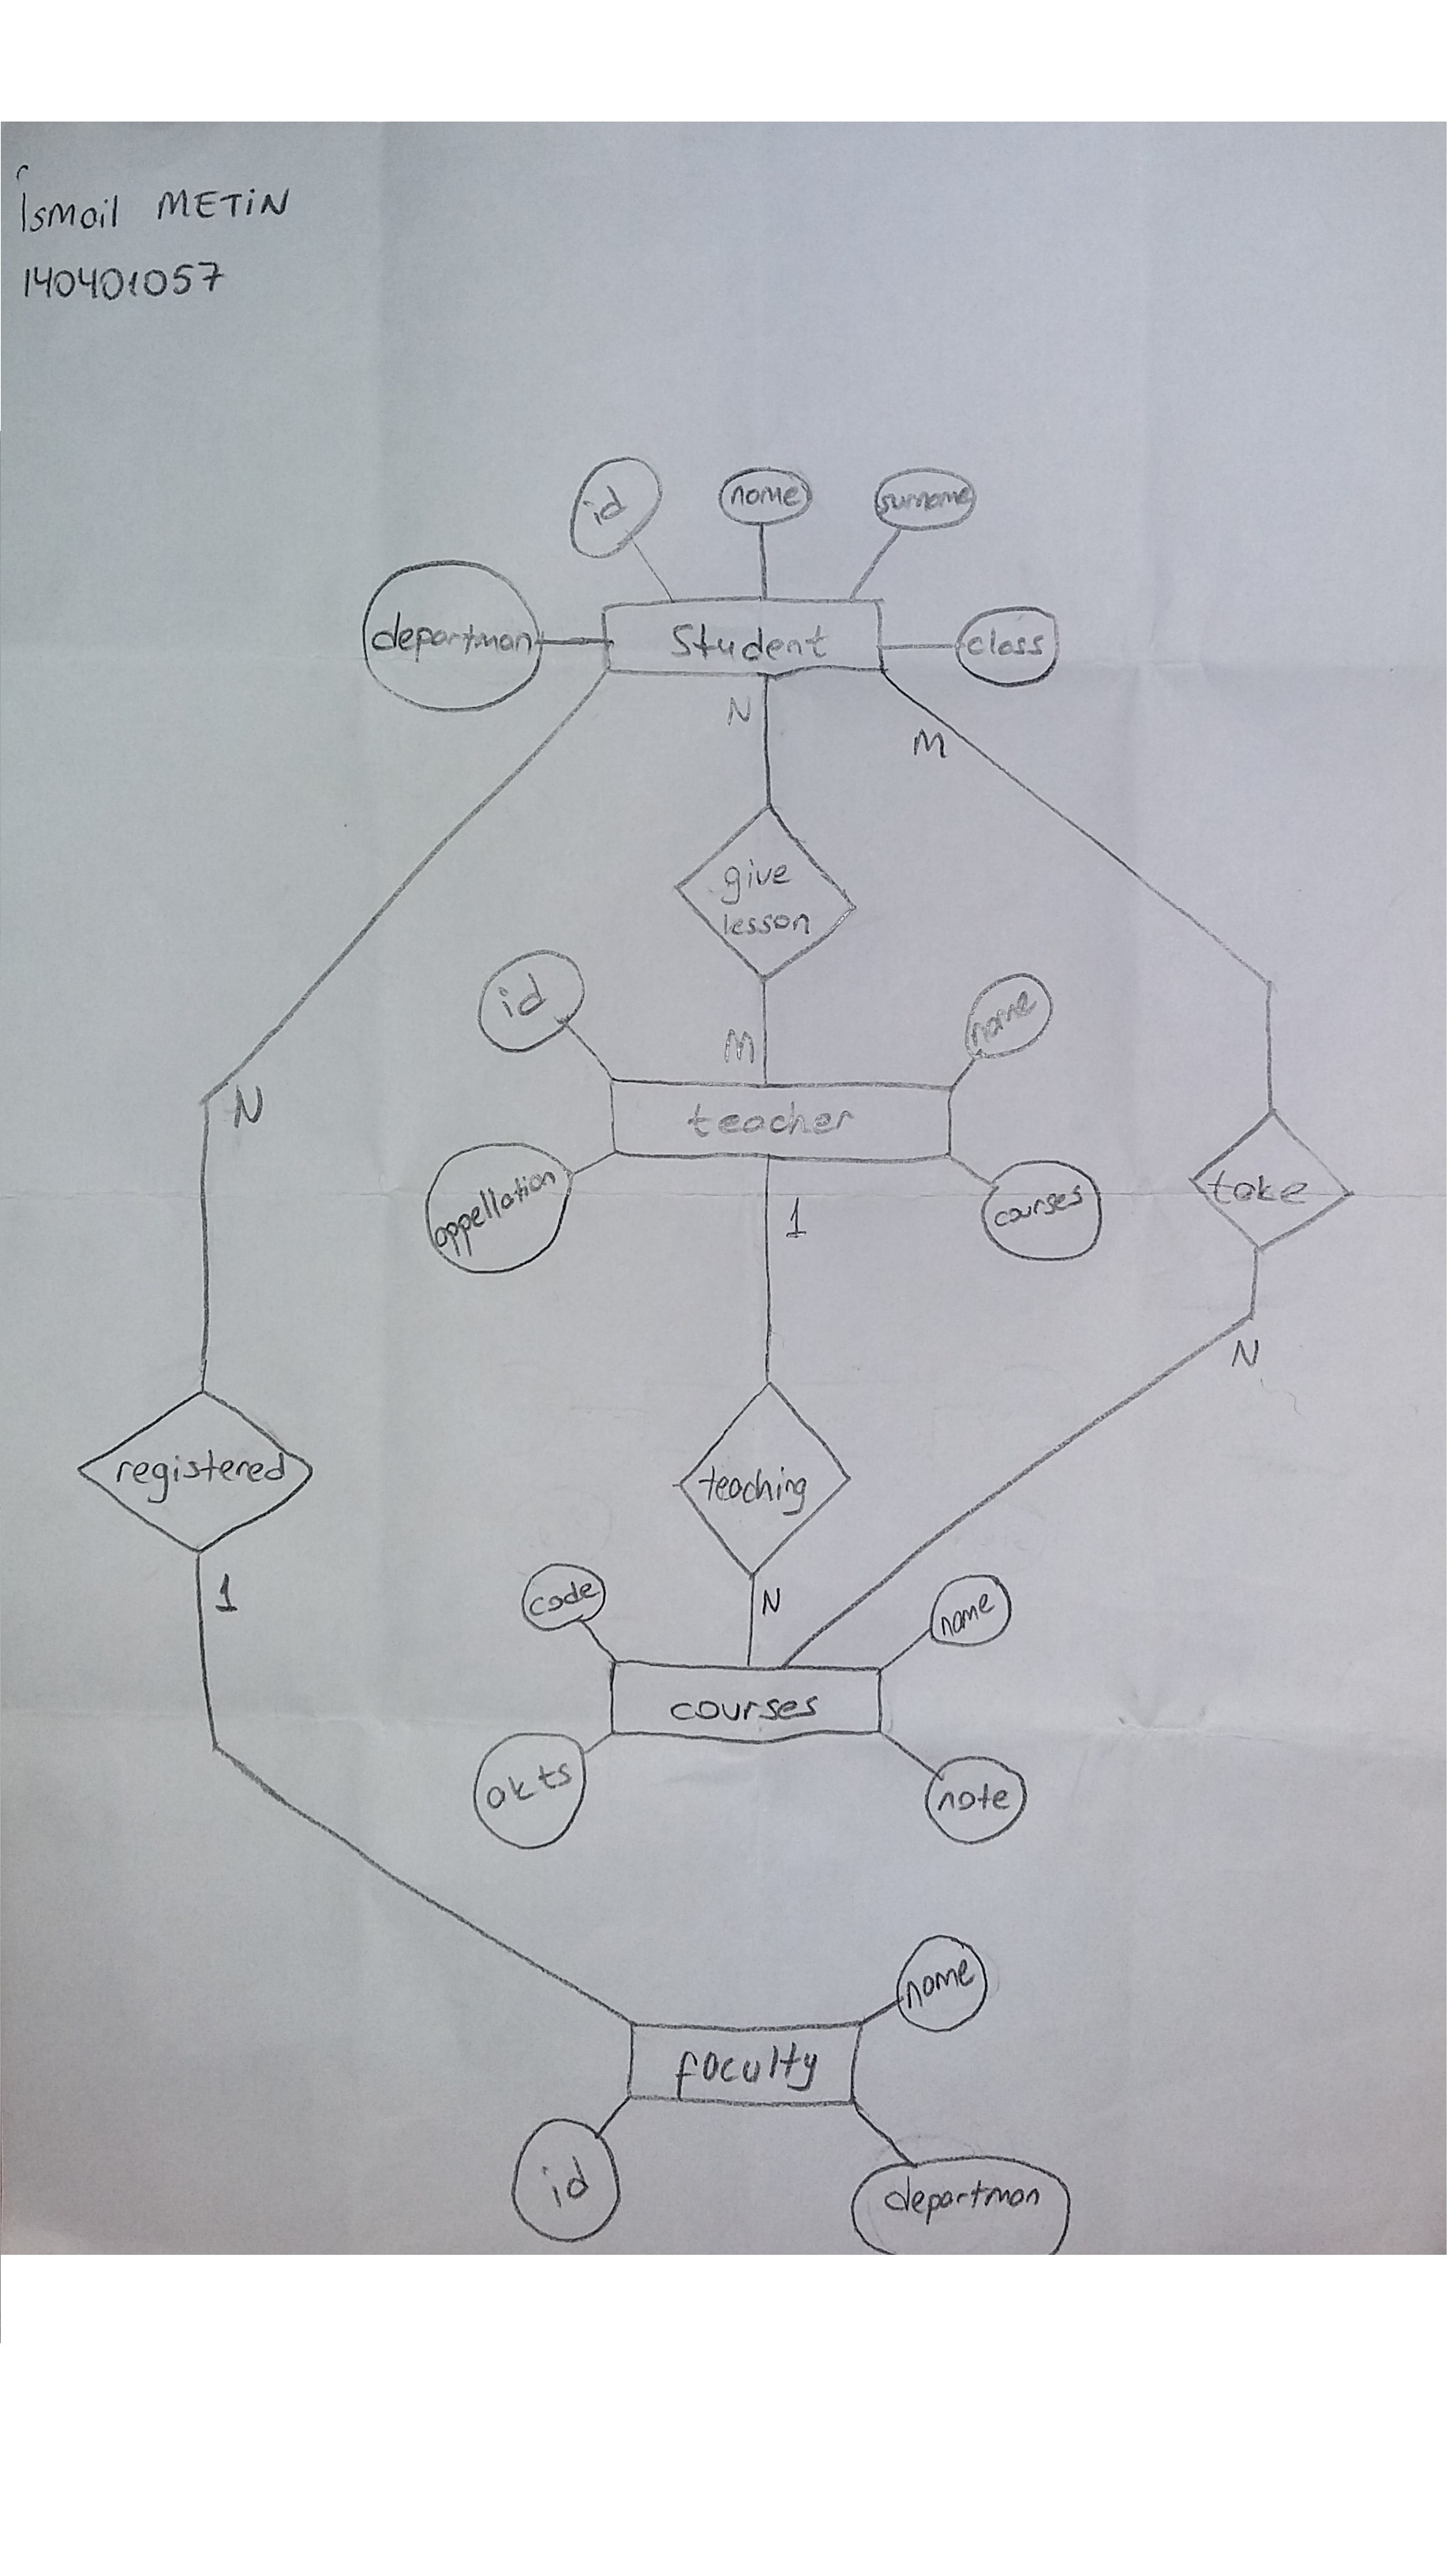 İsmail METİN
140401057
id
name
surname
departman
Student
class
N
M
give
lesson
id
name
M
N
teacher
appellation
courses
1
take
N
registered
teaching
1
code
N
name
courses
akts
note
name
faculty
id
departman